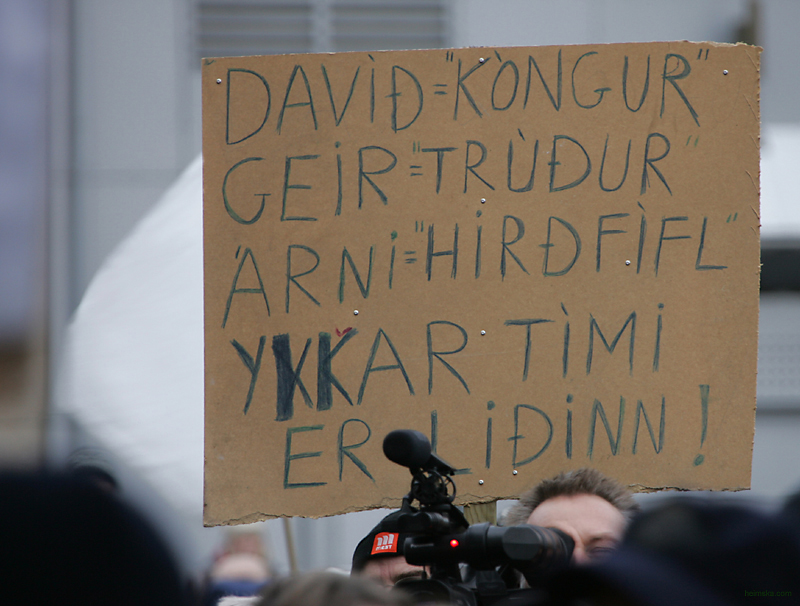 DAVÌÐ="KÒNGUR"
GEIR="TRÙÐUR"
ÁRNi="HIRÐFÌFL"
YKKAR TÌMI
ER LIÐINN!